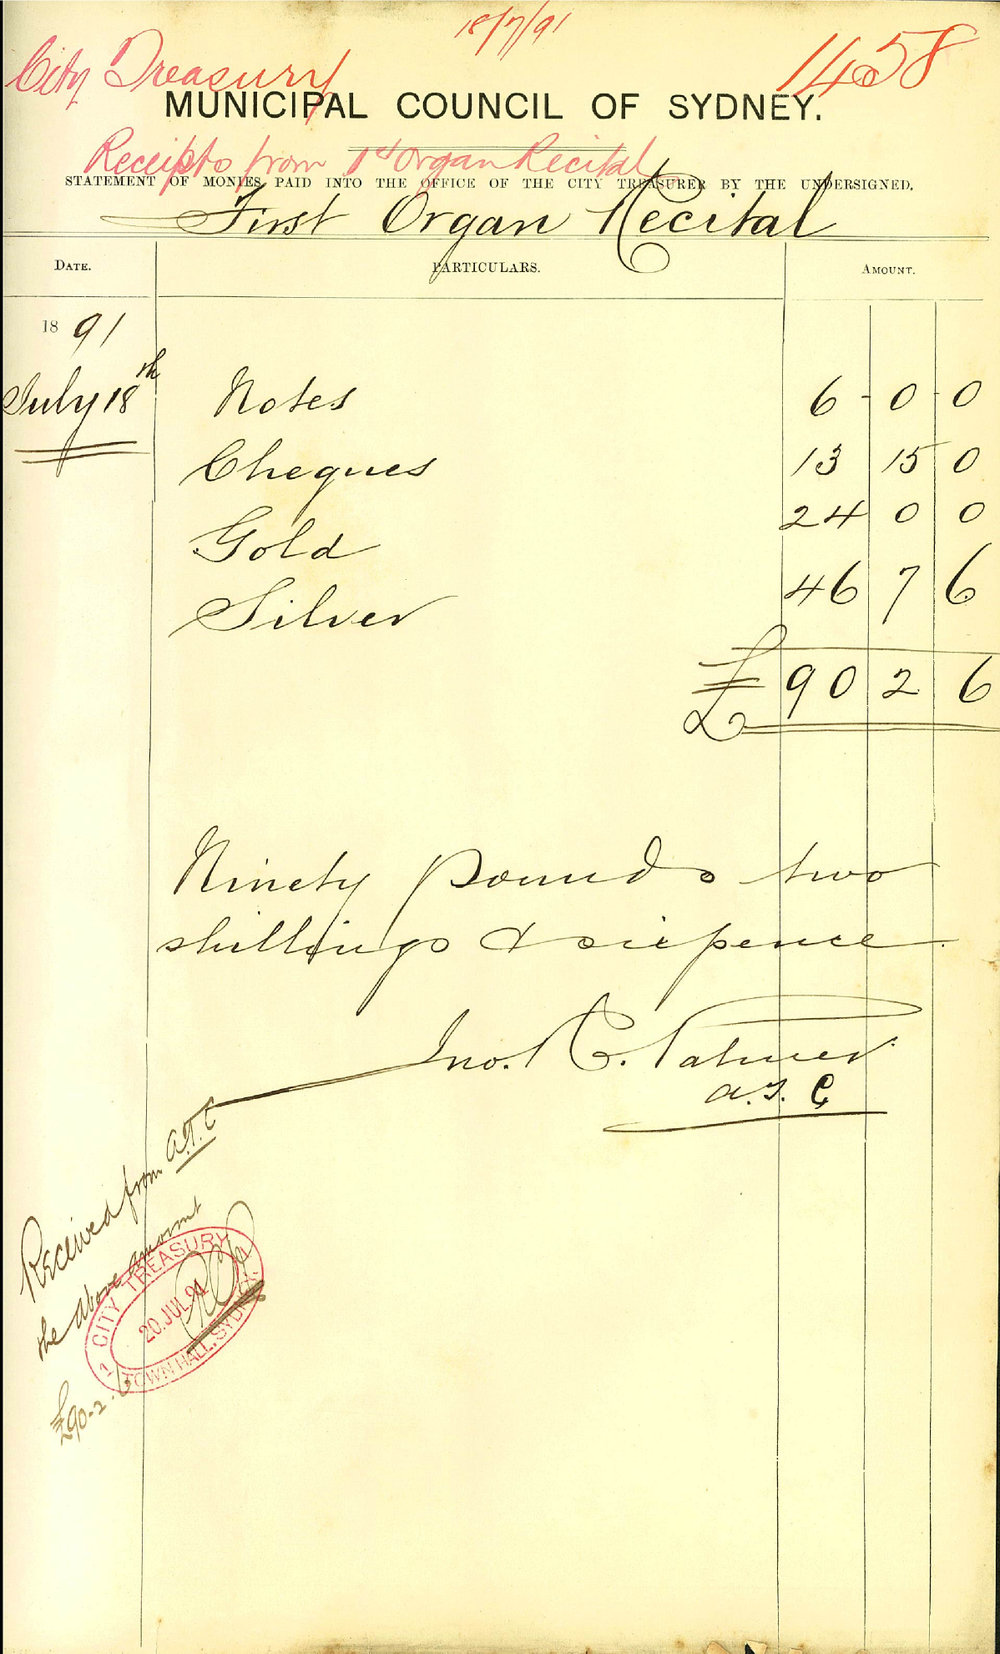 18/7/91
City Treasury
1458
MUNICIPAL COUNCIL OF SYDNEY.
Receipts from 1st Organ Recital
STATEMENT OF MONIES PAID INTO THE OFFICE OF THE CITY TREASURER BY THE UNDERSIGNED.
First Organ Recital
DATE. PARTICULARS. AMOUNT.
1891
July 18th Notes 6 - 0 - 0
Cheques 13 15 0
Gold 24 0 0
Silver 46 7 6
£ 90 2 6
Ninety pounds two
shillings & sixpence
Jno. R. Palmer
A.T.C
Received from A.T.C
the above amount
CITY TREASURY
20.JUL.91
TOWN HALL, SYDNEY.
£90-2-6